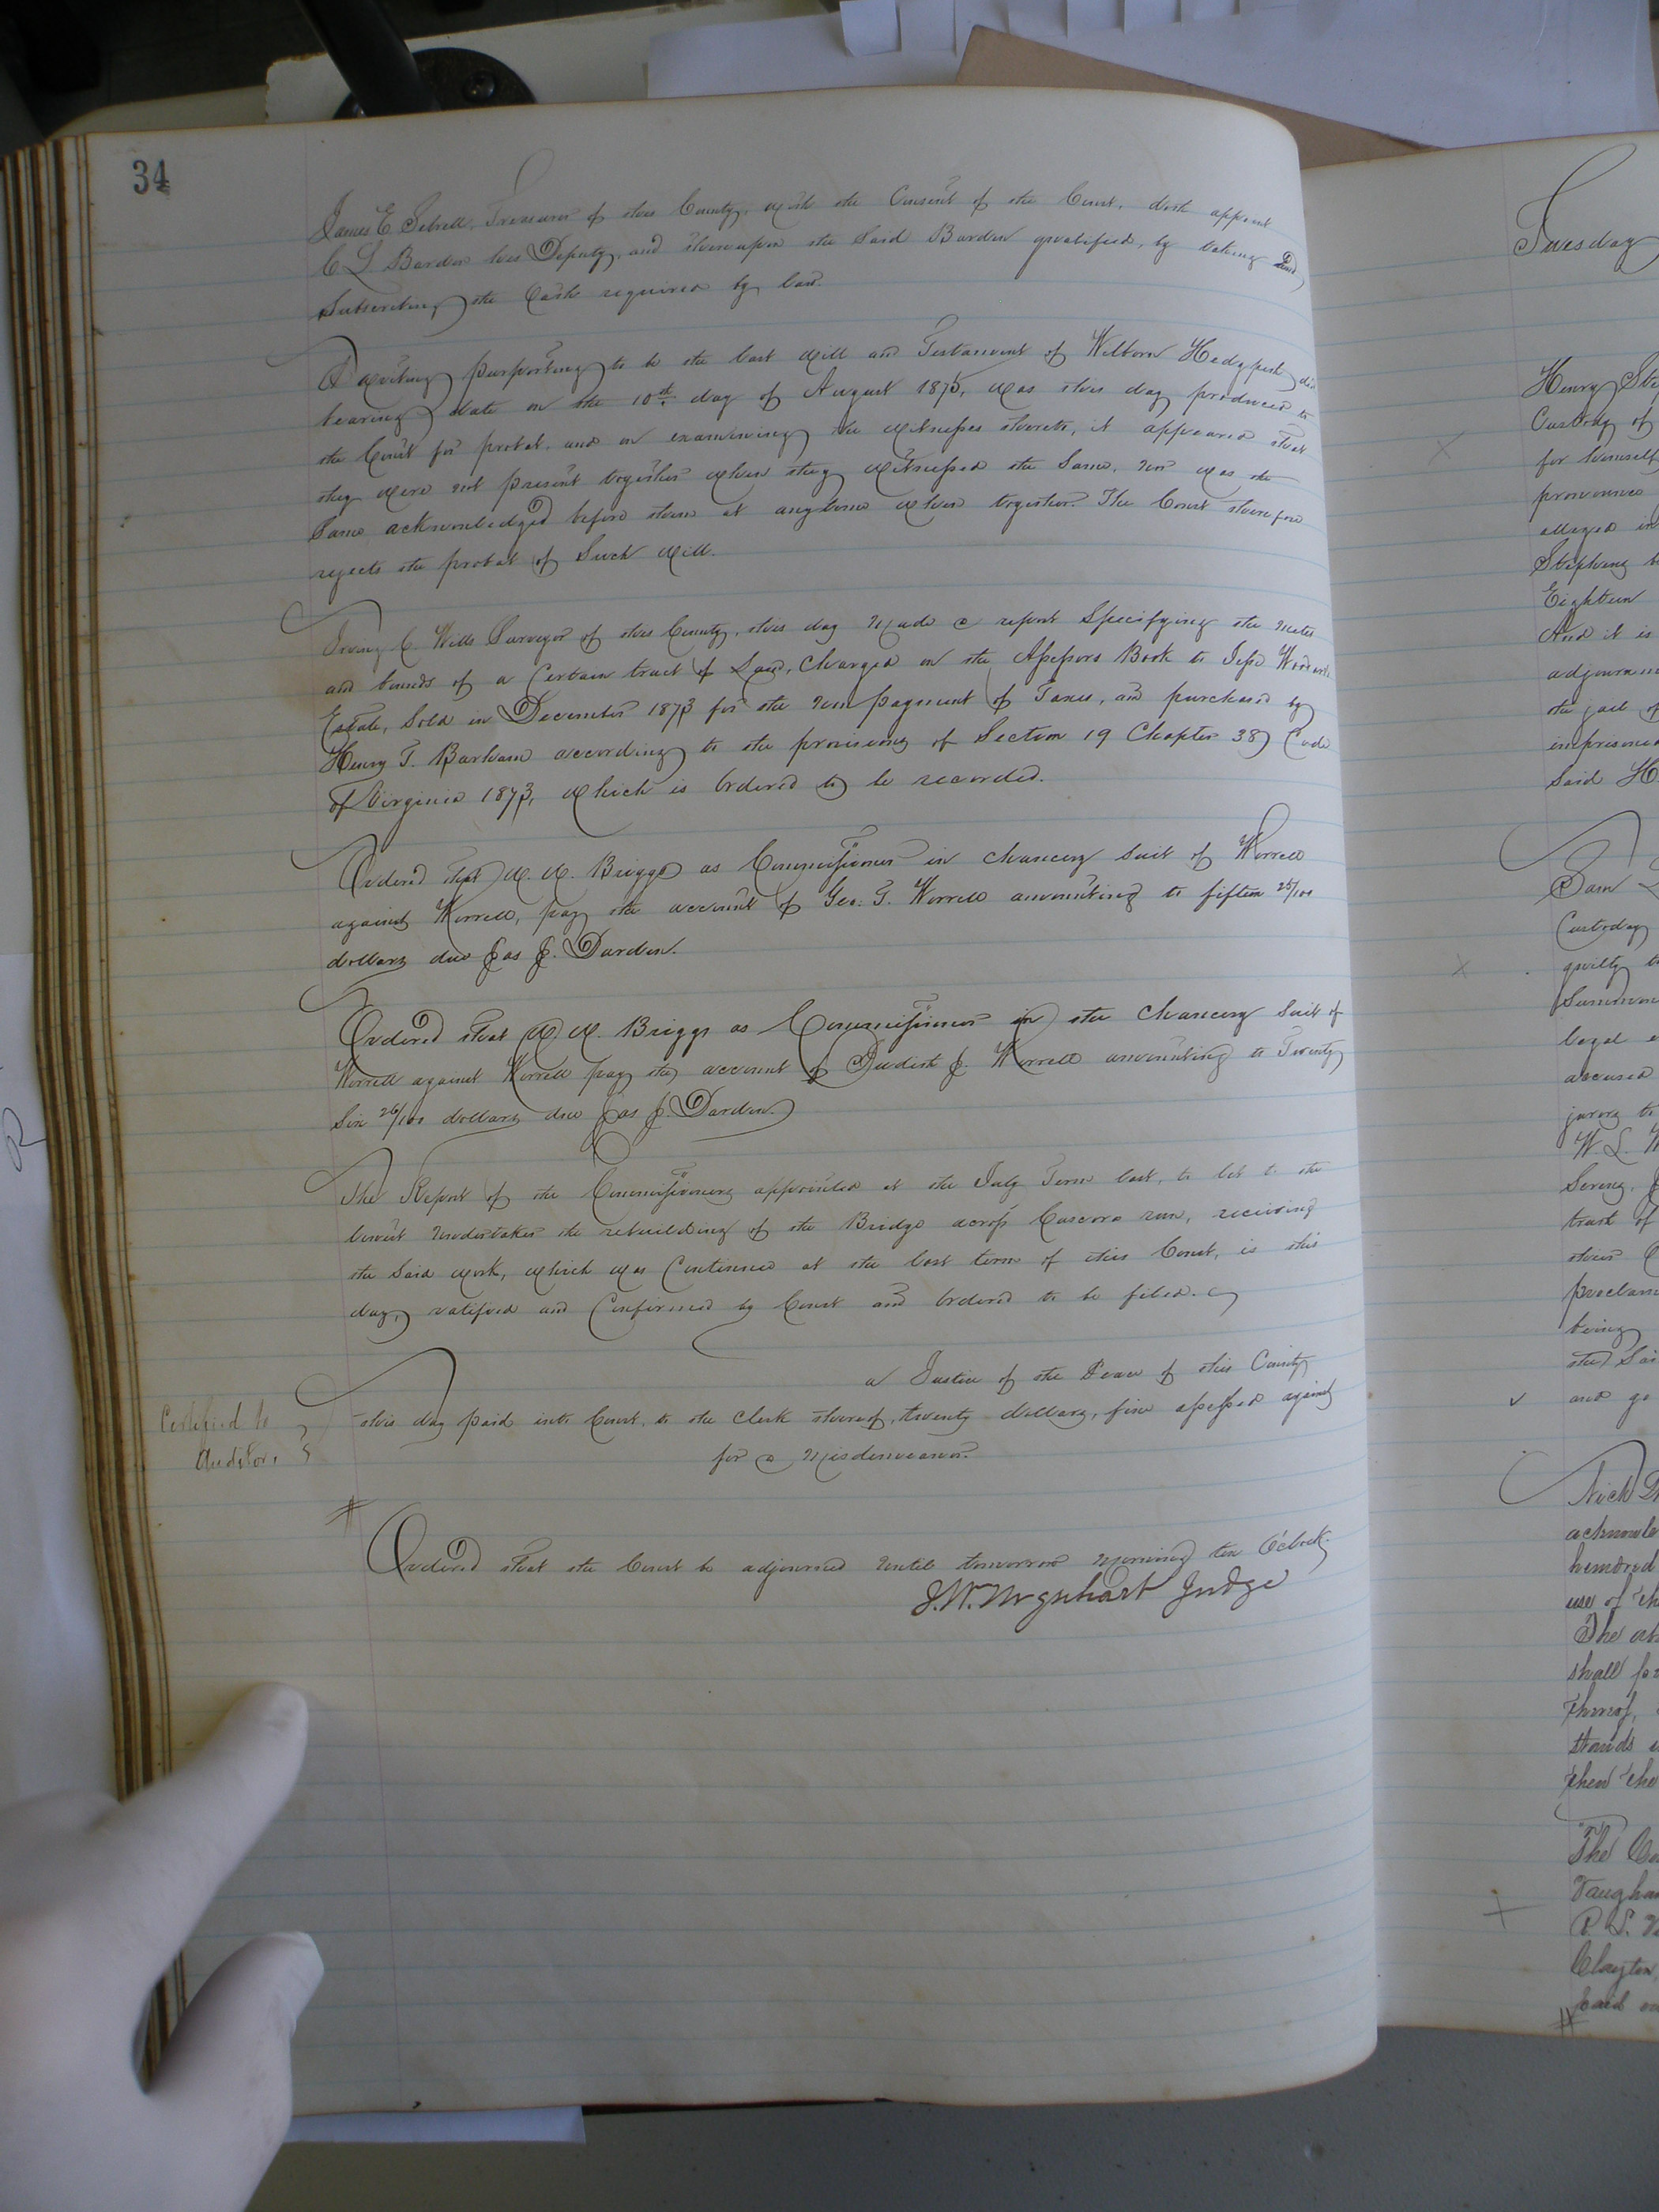 34
James E. Sebrell, Treasurer of this County, with the Consent of the Court, doth appoint
C. L. Barden his Deputy, and thereupon the Said Barden qualified, by taking and
Subscribing the Oath required by law.
A writing purporting to be the last Will and Testament of Wilborn Hedgpeth dec
bearing date on the 10th day of August 1875, was this day produced to
the Court for probat, and on examining the witnesses thereto, it appeared that
they were not present together when they witnessed the Same, nor was the
Same acknowledged before them at any time when together. The Court therefore
rejects the probat of Such Will.
Irving C. Wills Surveyor of this County, this day made a report Specifying the metes
and bounds of a Certain tract of Land, Charged on the Assessors Book to Jesse
Estate, Sold in December 1873 for the non payment of Taxes, and purchased by
Henry T. Barham according to the provisions of Section 19 Chapter 38 Code
of Virginia 1873, which is Ordered to be recorded.
Ordered that W. W. Briggs as Commissioner in chancery Suit of Worrell
against Worrell, pay the account of Geo. G. Worrell amounting to fifteen 25/100
dollars due Jas J. Darden.
Ordered that W. W. Briggs as Commissioner in the chancery Suit of
Worrell against Worrell pay the account of Judith J. Worrell amounting to Twenty
Six 26/100 dollars due Jas J. Darden.
The Report of the Commissioners appointed at the July Term last, to let to the
lowest undertaker the rebuilding of the Bridge across run, receiving
the Said work, which was Continued at the last term of this Court, is this
day, ratified and Confirmed by Court and Ordered to be filed.
a Justice of the Peace of this County
Certified to
this day paid into Court, to the Clerk thereof, twenty dollars, fine assessed against
Auditor.
for a Misdemeanor.
#
Ordered that the Court be adjourned until tomorrow morning ten O'clock.
J. W. Urquhart Judge
Tuesday
Henry
Custody of
for himself
pronounce
alleged in
Stephens
Eighteen
And it is
the jail of
Said H
X
Sam
Custody
X
guilty
legal
accused
jurors to
W. L. W
trust of
being
the Sai
and go
Nick
hundred
use of the
The
shall
thereof,
stands
then the
The
+
Clayton,
#